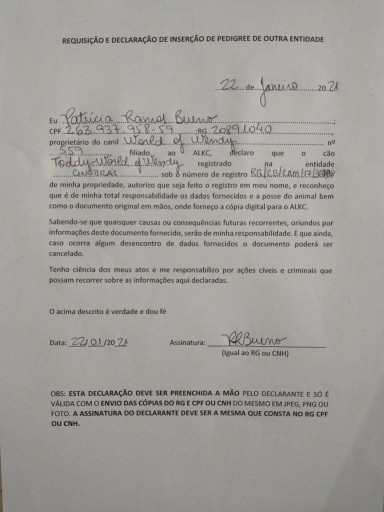 REQUISIÇÃO E DECLARAÇÃO DE INSERÇÃO DE PEDIGREE DE OUTRA ENTIDADE
22 de Janeiro 2021
Eu Patrícia Ramos Bueno
CPF 263.937.958-59 RG 20891040
proprietário do canil World of Wendy nº
559 filiado ao ALKC, declaro que o cão
Toddy World of Wendy registrado na entidade
sob o número de registro
de minha propriedade, autorizo que seja feito o registro em meu nome, e reconheço
que é de minha total responsabilidade os dados fornecidos e a posse do animal bem
como o documento original em mãos, onde forneço a cópia digital para o ALKC.
Sabendo-se que quaisquer causas ou consequências futuras recorrentes, oriundos por
informações deste documento fornecido, serão de minha responsabilidade. E que ainda,
caso ocorra algum desencontro de dados fornecidos o documento poderá ser
cancelado.
Tenho ciência dos meus atos e me responsabilizo por ações cíveis e criminais que
possam recorrer sobre as informações aqui declaradas.
O acima descrito é verdade e dou fé
Data: 22/01/2021 Assinatura: PRBueno
(Igual ao RG ou CNH)
OBS: ESTA DECLARAÇÃO DEVE SER PREENCHIDA A MÃO PELO DECLARANTE E SÓ É
VÁLIDA COM O ENVIO DAS CÓPIAS DO RG E CPF OU CNH DO MESMO EM JPEG, PNG OU
FOTO. A ASSINATURA DO DECLARANTE DEVE SER A MESMA QUE CONSTA NO RG CPF
OU CNH.